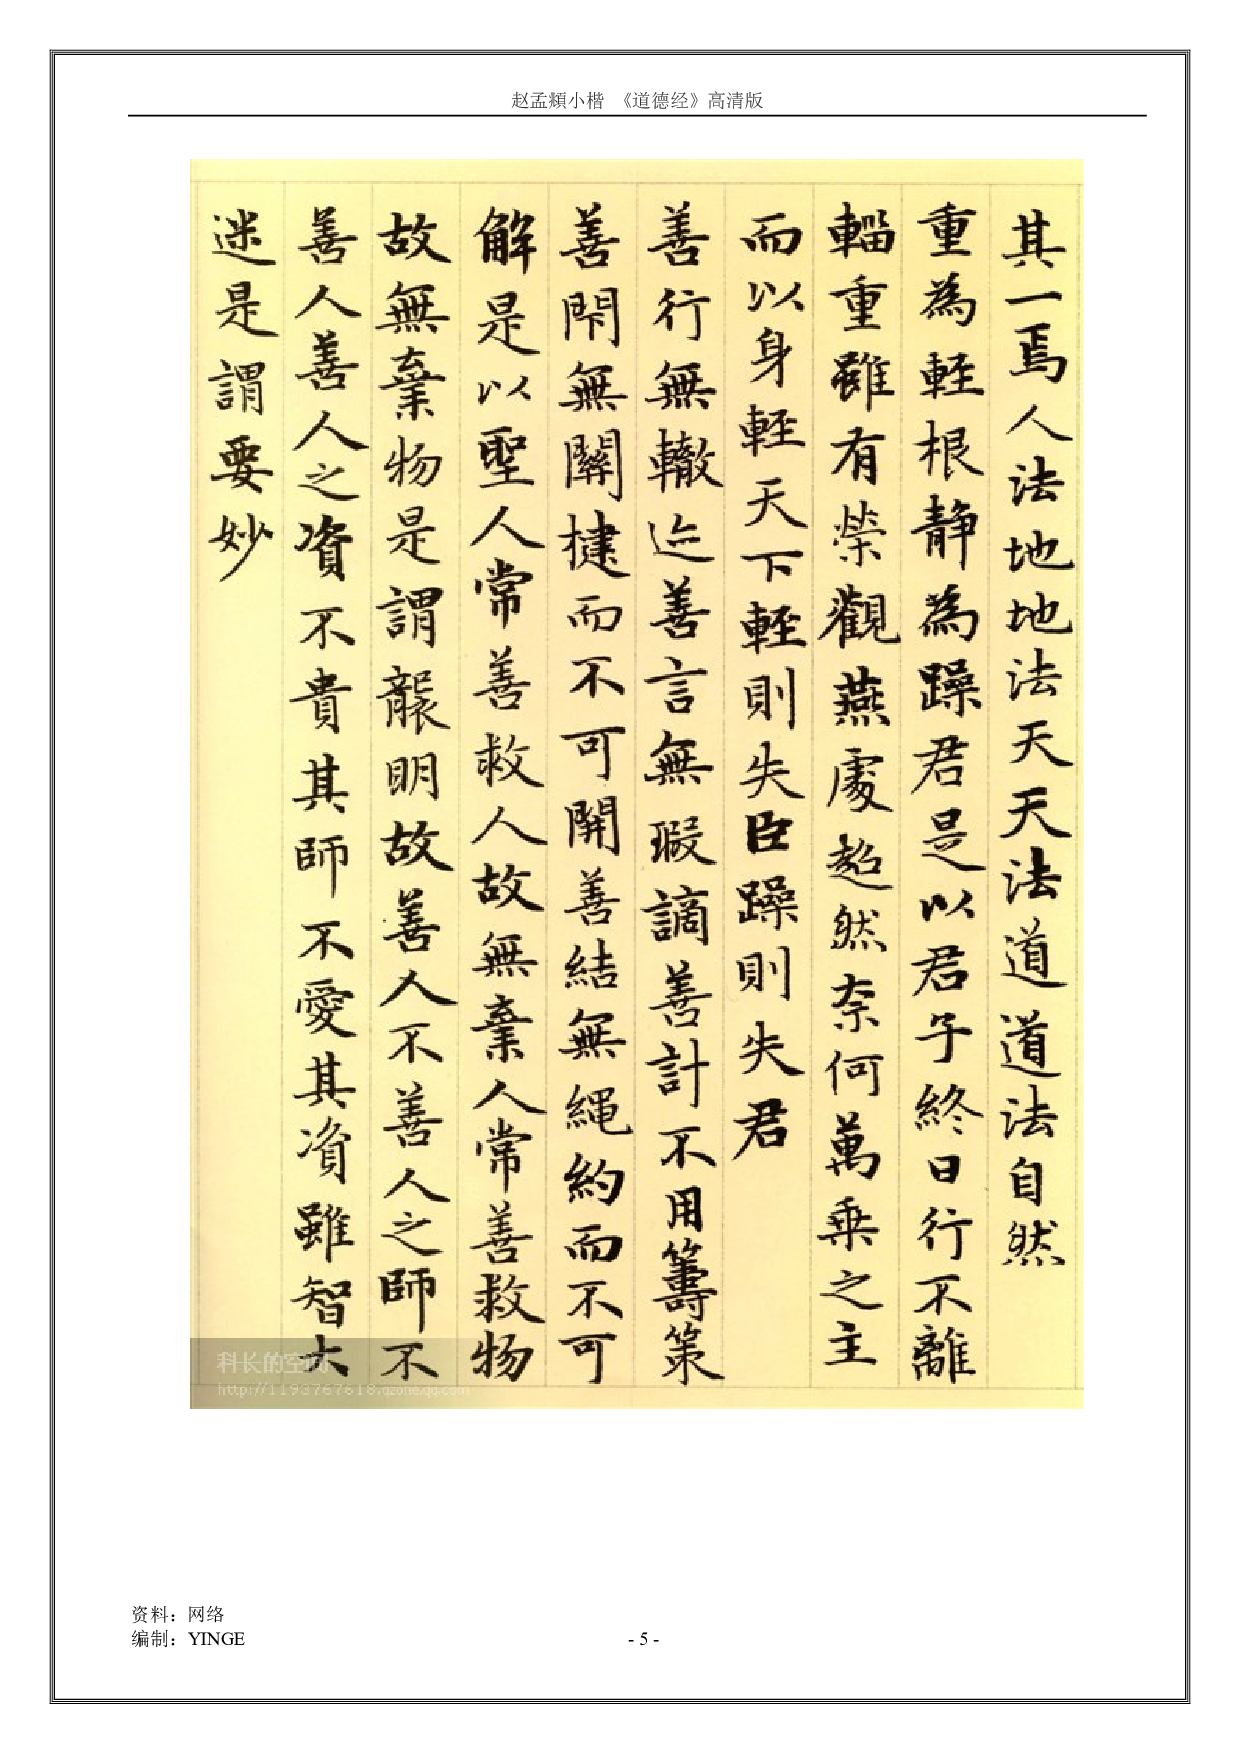 赵孟頫小楷 《道德经》高清版
其一焉人法地地法天天法道道法自然
重為輕根静為躁君是以君子終日行不離
輜重雖有榮觀燕處超然奈何萬乗之主
而以身輕天下輕則失臣躁則失君
善行無轍迹善言無瑕謫善計不用籌策
善閇無關揵而不可開善結無繩約而不可
解是以聖人常善救人故無棄人常善救物
故無棄物是謂襲明故善人不善人之師不
善人善人之資不貴其師不愛其資雖智大
迷是謂要妙
科长的空间
http://1193767618.qzone.qq.com
资料：网络
编制：YINGE
- 5 -